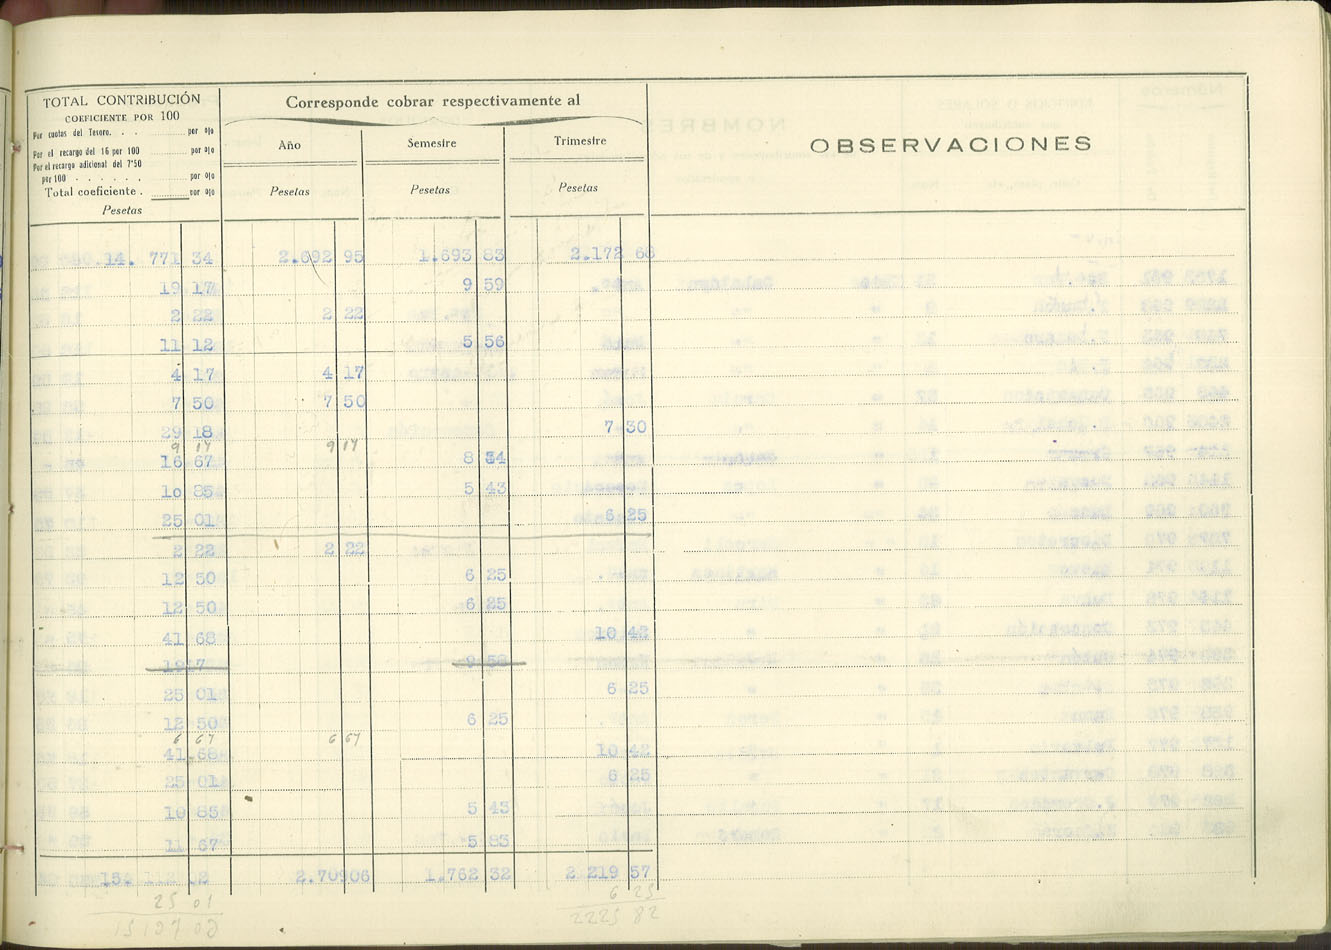 TOTAL CONTRIBUCIÓN
COEFICIENTE POR 100
Por cuotas del Tesoro. . . por o/o
Por el recargo del 16 por 100 por o/o
Por el recargo adicional del 7'50
por 100 . . . . . . por o/o
Total coeficiente . por o/o
Pesetas
Corresponde cobrar respectivamente al
Año Semestre Trimestre
Pesetas Pesetas Pesetas
OBSERVACIONES
14. 771 34 2.692 95 1.693 83 2.172 68
19 17 9 59
2 22 2 22
11 12 5 56
4 17 4 17
7 50 7 50
29 18 7 30
9 17 9 17
16 67 8 34
10 85 5 43
25 01 6 25
2 22 2 22
12 50 6 25
12 50 6 25
41 68 10 42
25 01 6 25
12 50 6 25
6 67 6 67
41.68 10 42
25 01 6 25
10 85 5 43
11 67 5 83
15. 112 02 2.70906 1.762 32 2 219 57
25 01 6 25
15137 02 2225 82